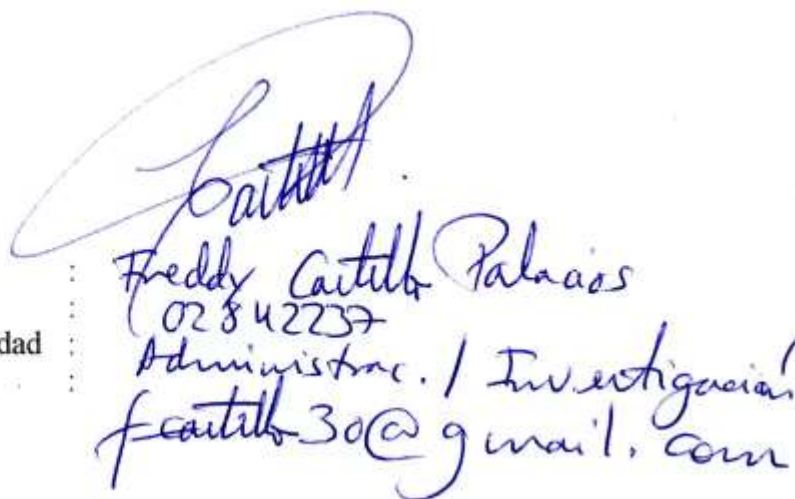 Castillo
: Freddy Castillo Palacios
: 02842237
dad : Administrac. / Investigación
: fcastillo30@gmail.com